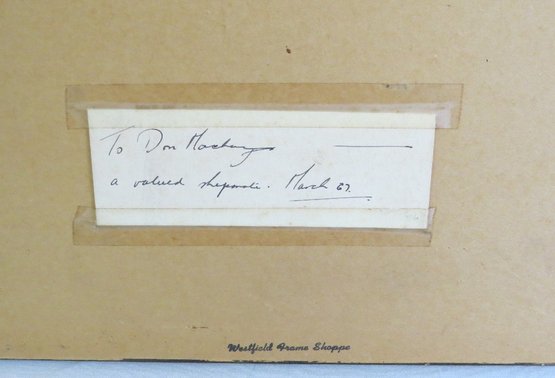 To Don Mackenzie
a valued shipmate. March 67.
Westfield Frame Shoppe